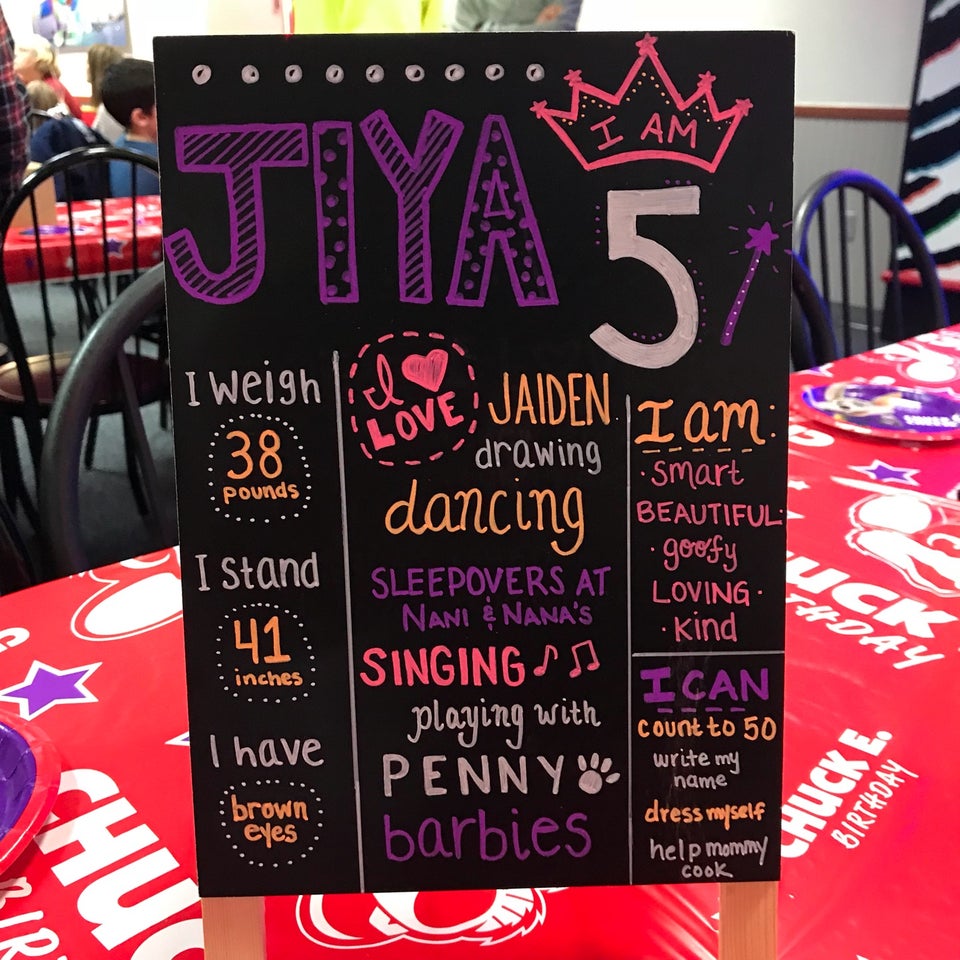 JIYA
I AM
5
I weigh
38
pounds
I stand
41
inches
I have
brown
eyes
I
LOVE
JAIDEN
drawing
dancing
SLEEPOVERS AT
NANI & NANA'S
SINGING
playing with
PENNY
barbies
I am:
· smart
BEAUTIFUL·
· goofy
LOVING ·
· kind
I CAN
count to 50
write my
name
dress myself
help mommy
cook
CHUCK E.
BIRTHDAY
CHUCK
BIRTHDAY